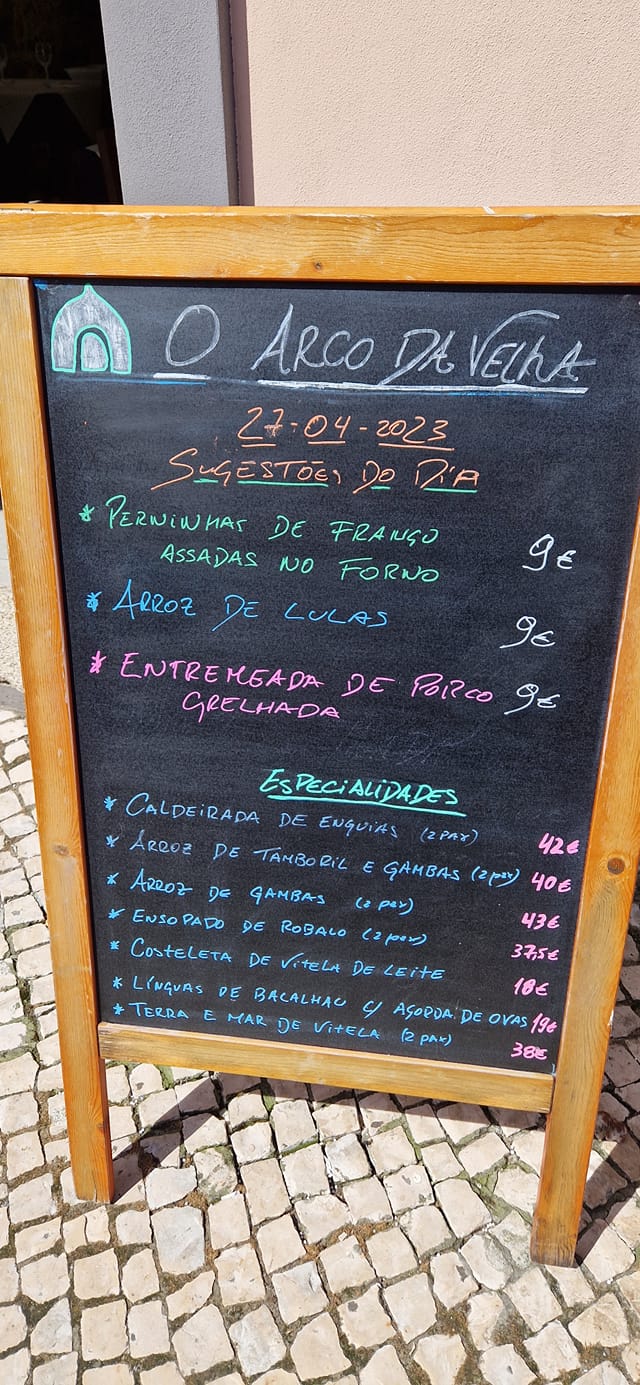 O ARCO DA VELHA
27-04-2023
SUGESTÕES DO DÍA
* PERNINHAS DE FRANGO
ASSADAS NO FORNO 9€
* ARROZ DE LULAS 9€
* ENTREMEADA DE PORCO 9€
GRELHADA
ESPECIALIDADES
* CALDEIRADA DE ENGUIAS (2 PAX) 42€
* ARROZ DE TAMBORIL E GAMBAS (2 pax) 40€
* ARROZ DE GAMBAS (2 pax) 43€
* ENSOPADO DE ROBALO (2 pax) 37,5€
* COSTELETA DE VITELA DE LEITE 18€
* LÍNGUAS DE BACALHAU C/ AÇORDA DE OVAS 19€
* TERRA E MAR DE VITELA (2 PAX) 38€